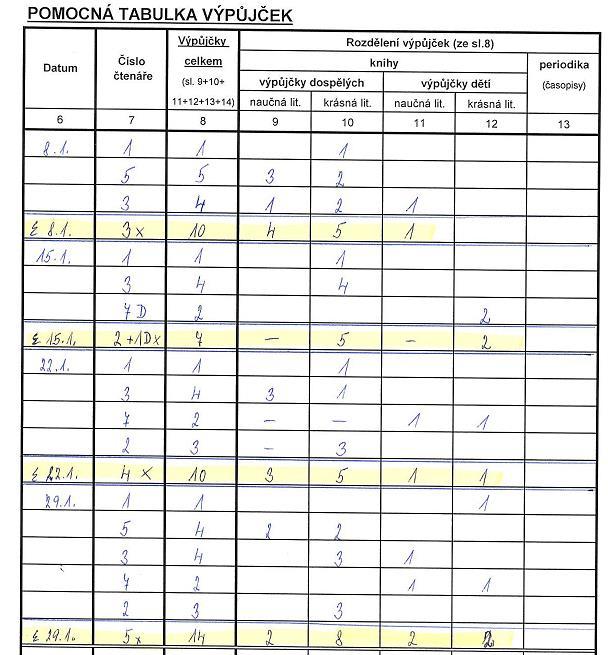 POMOCNÁ TABULKA VÝPŮJČEK
Datum Číslo čtenáře Výpůjčky celkem (sl. 9+10+ 11+12+13+14) Rozdělení výpůjček (ze sl.8)
knihy periodika (časopisy)
výpůjčky dospělých výpůjčky dětí
naučná lit. krásná lit. naučná lit. krásná lit.
6 7 8 9 10 11 12 13
8.1. 1 1 1
5 5 3 2
3 4 1 2 1
Σ 8.1. 3x 10 4 5 1
15.1. 1 1 1
3 4 4
7D 2 2
Σ 15.1. 2+1Dx 7 – 5 – 2
22.1. 1 1 1
3 4 3 1
7 2 – – 1 1
2 3 – 3
Σ 22.1. 4x 10 3 5 1 1
29.1. 1 1 1
5 4 2 2
3 4 3 1
7 2 1 1
2 3 3
Σ 29.1. 5x 14 2 8 2 2